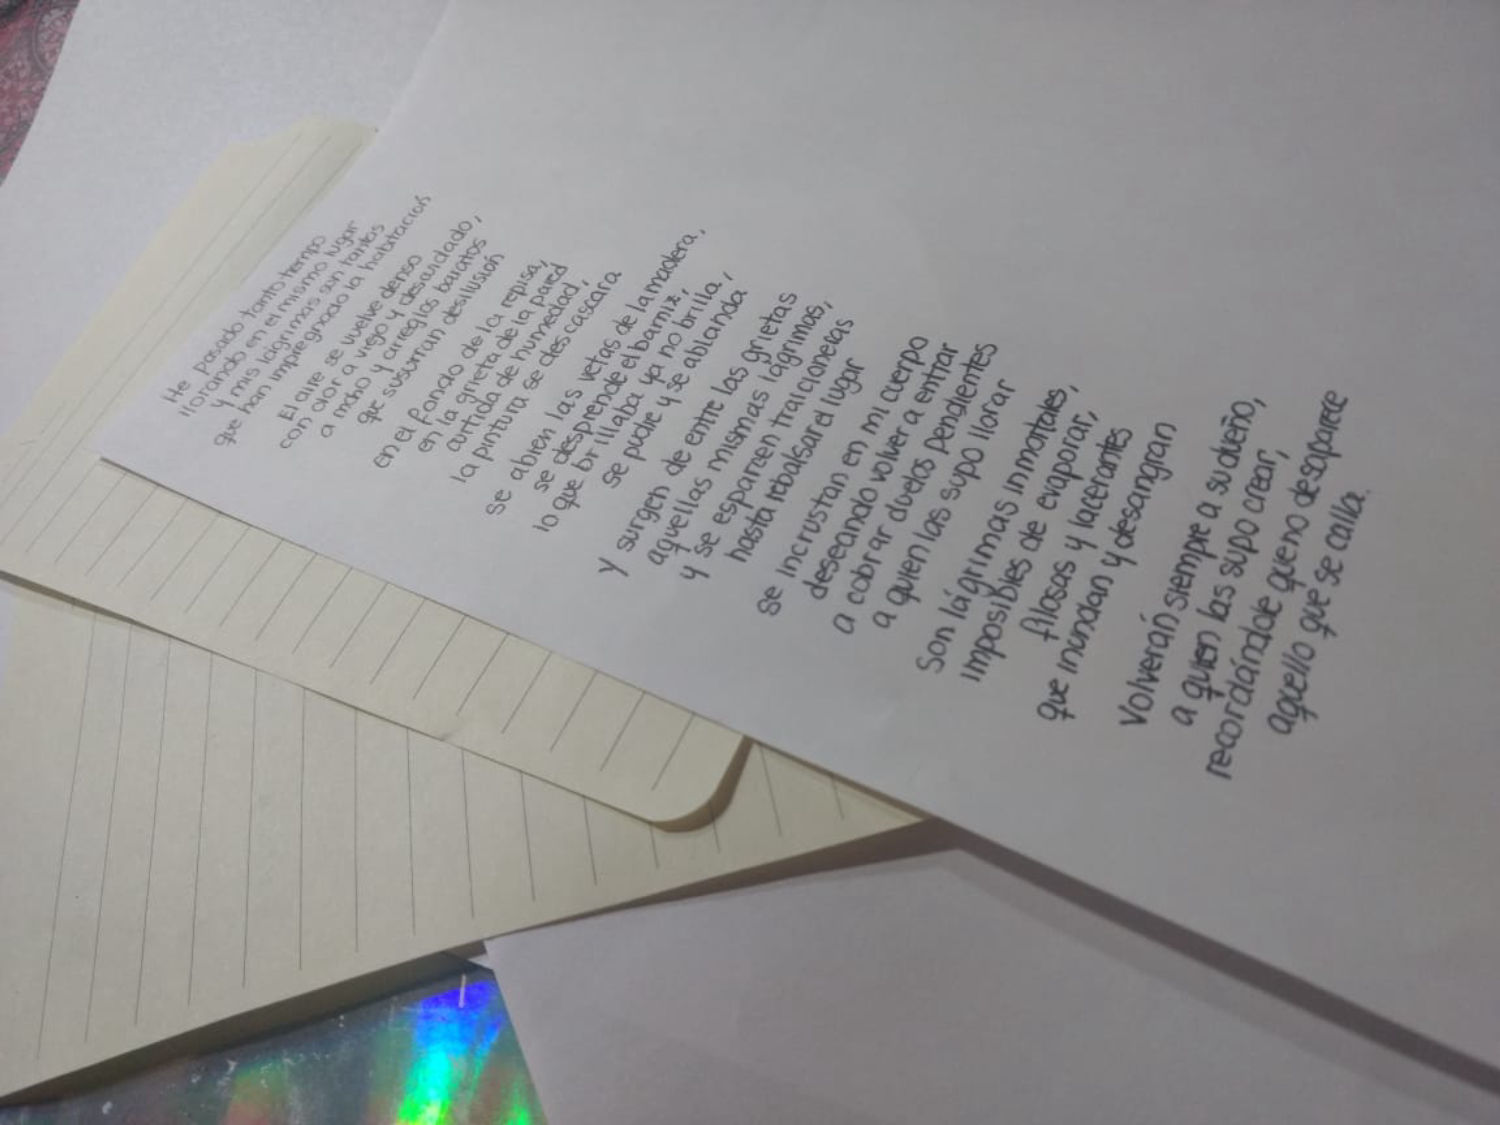 He pasado tanto tiempo
llorando en el mismo lugar
y mis lágrimas son tantas
que han impregnado la habitación
El aire se vuelve denso
con olor a viejo y descuidado,
a moho y arreglos baratos
que susurran desilusión
en el fondo de la repisa,
en la grieta de la pared
curtida de humedad,
la pintura se descascara
se abren las vetas de la madera,
se desprende el barniz,
lo que brillaba ya no brilla,
se pudre y se ablanda
Y surgen de entre las grietas
aquellas mismas lágrimas,
y se esparcen traicioneras
hasta rebalsar el lugar
se incrustan en mi cuerpo
deseando volver a entrar
a cobrar duelos pendientes
a quien las supo llorar
Son lágrimas inmortales,
imposibles de evaporar,
filosas y lacerantes
que inundan y desangran
Volverán siempre a su dueño,
a quien las supo crear,
recordándole que no desaparece
aquello que se calla.